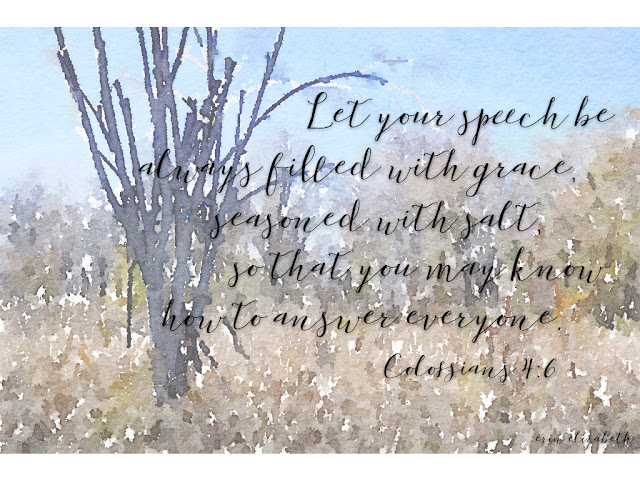 Let your speech be
always filled with grace,
seasoned with salt,
so that you may know
how to answer everyone.
Colossians 4:6
erin elizabeth